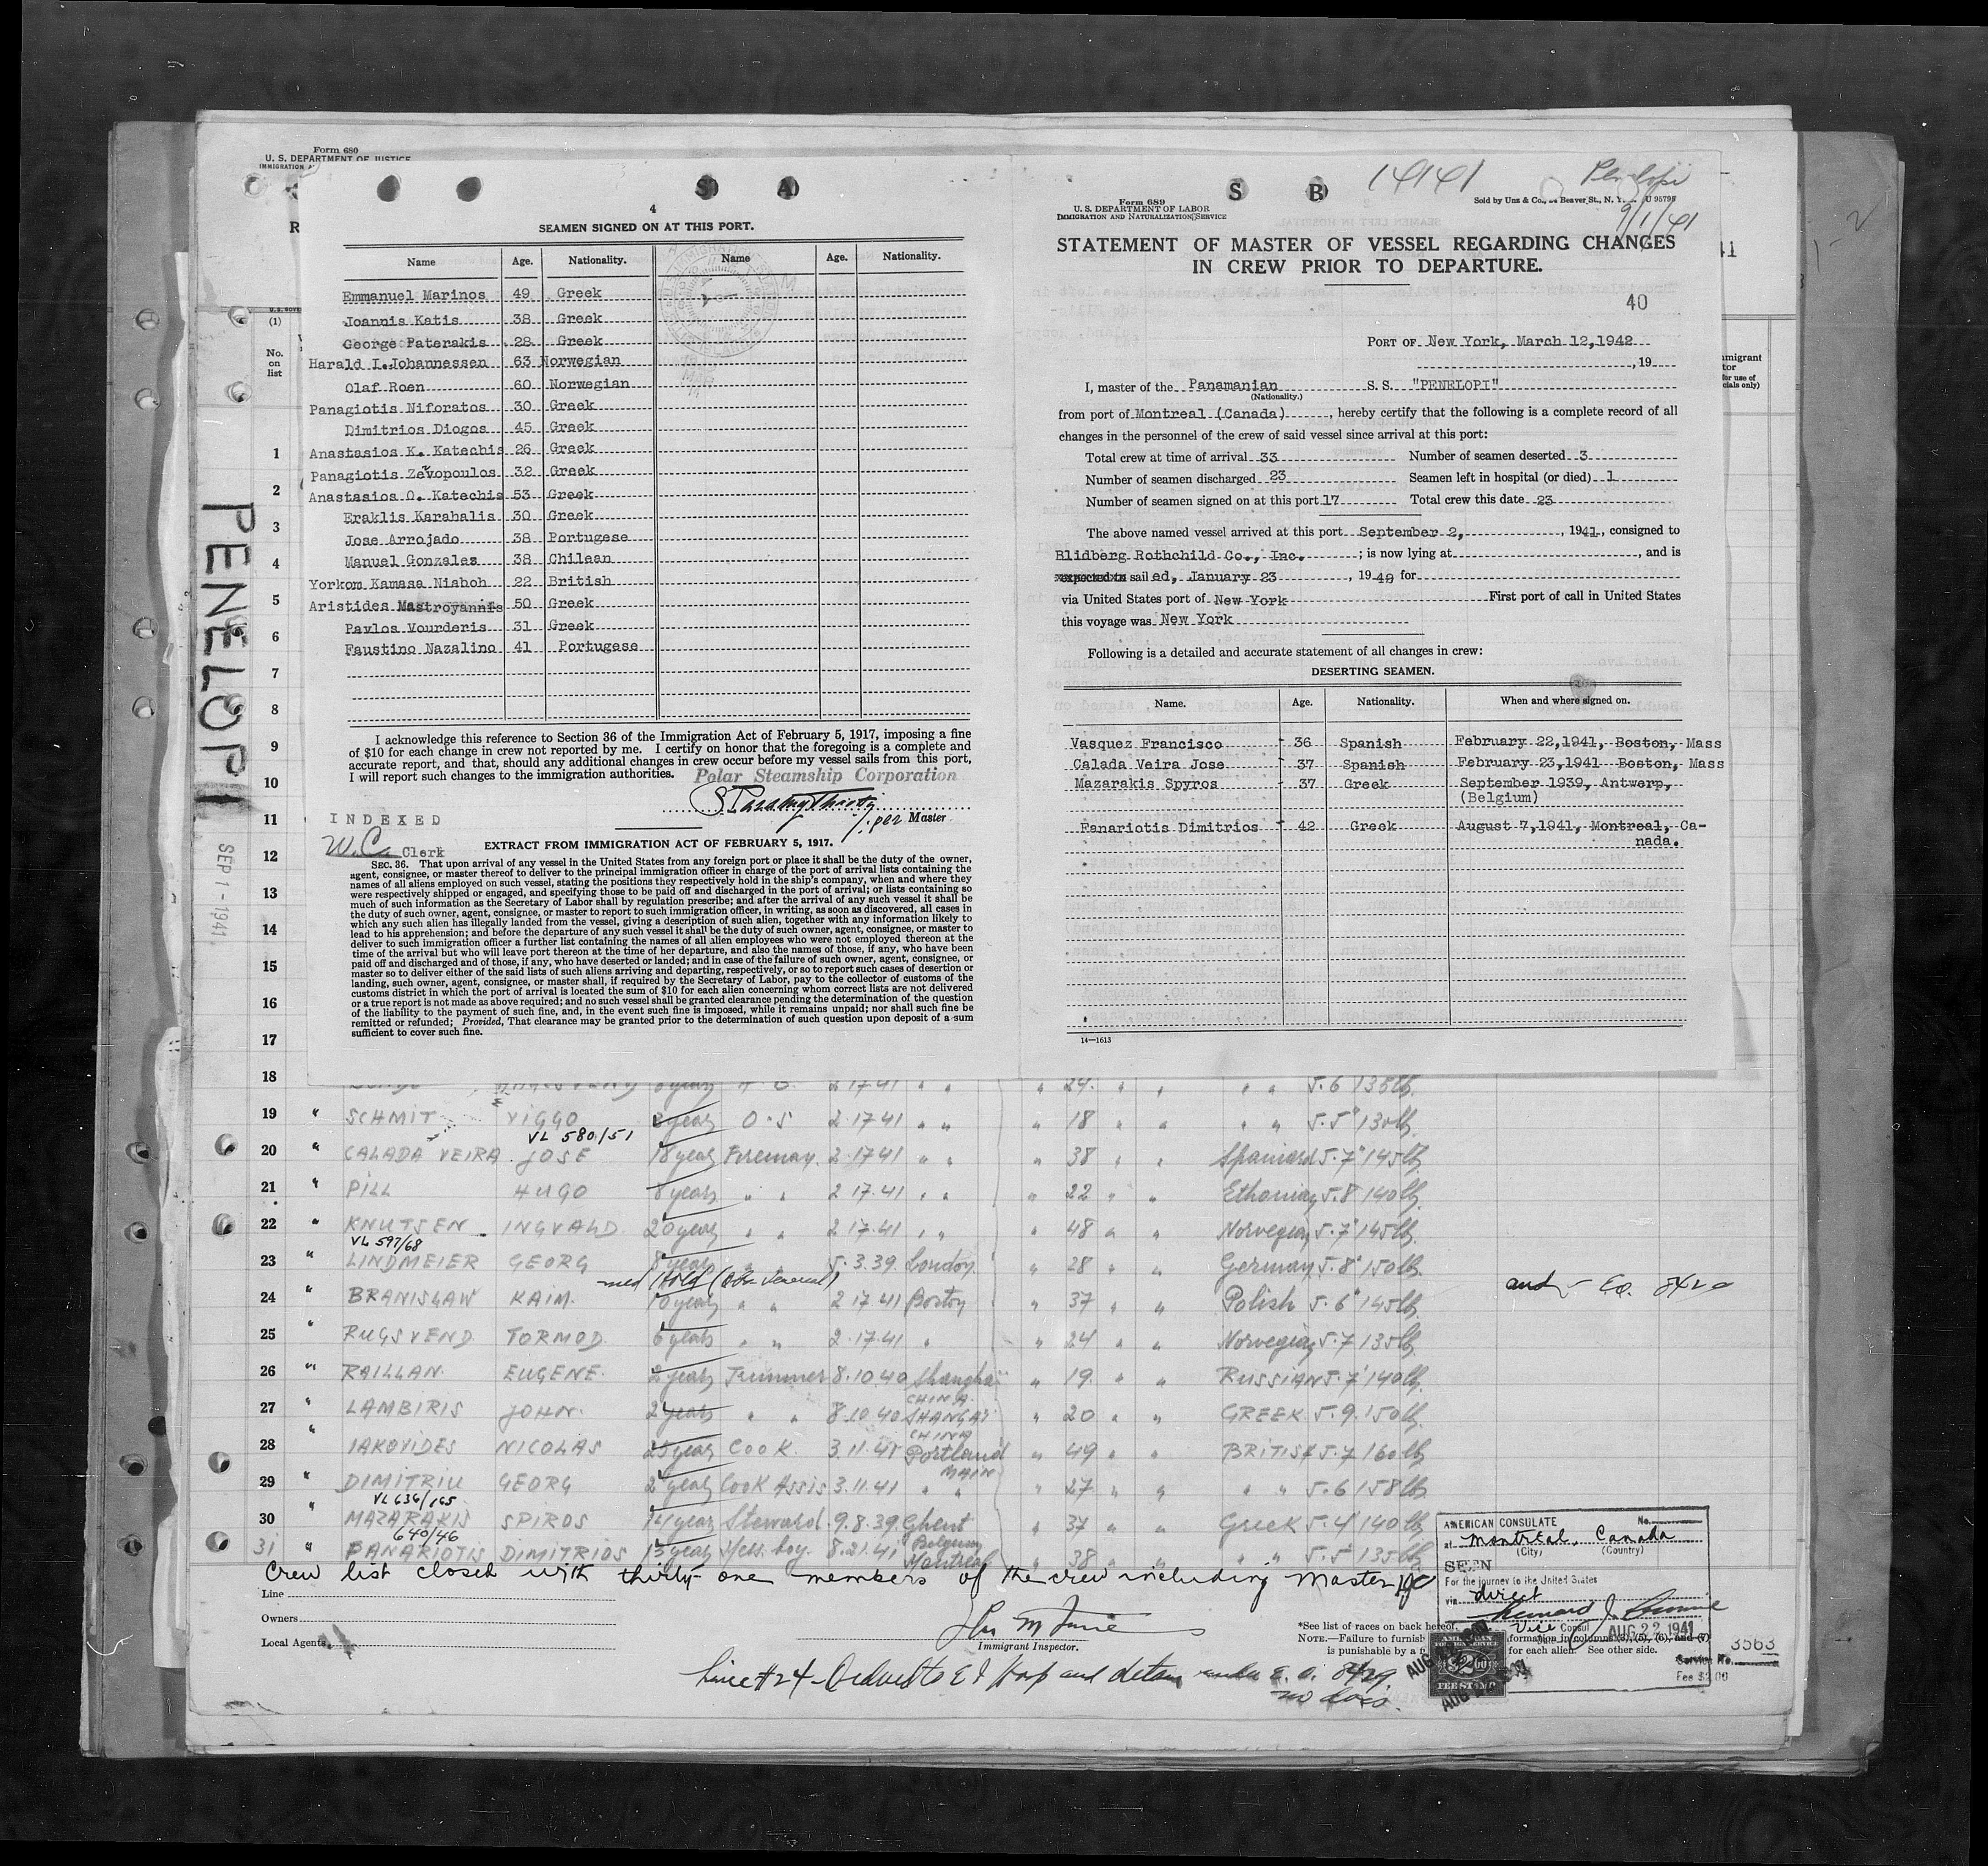 Form 680
U. S. DEPARTMENT OF JUSTICE
4
SEAMEN SIGNED ON AT THIS PORT.
Name Age. Nationality. Name Age. Nationality.
Emmanuel Marinos 49 Greek
Joannis Katis 38 Greek
George Paterakis 28 Greek
Harald I. Johannessen 63 Norwegian
Olaf Roen 60 Norwegian
Panagiotis Niforatos 30 Greek
Dimitrios Diogos 45 Greek
Anastasios K. Katechis 26 Greek
Panagiotis Zevopoulos 32 Greek
Anastasios O. Katechis 53 Greek
Eraklis Karahalis 30 Greek
Jose Arrojado 38 Portugese
Manuel Gonzales 38 Chilean
Yorkom Kamasa Niahoh 22 British
Aristides Mastroyannis 50 Greek
Pavlos Vourderis 31 Greek
Faustino Nazalino 41 Portugese
I acknowledge this reference to Section 36 of the Immigration Act of February 5, 1917, imposing a fine
of $10 for each change in crew not reported by me. I certify on honor that the foregoing is a complete and
accurate report, and that, should any additional changes in crew occur before my vessel sails from this port,
I will report such changes to the immigration authorities. Polar Steamship Corporation
per Master.
INDEXED
W.C. Clerk
EXTRACT FROM IMMIGRATION ACT OF FEBRUARY 5, 1917.
SEC. 36. That upon arrival of any vessel in the United States from any foreign port or place it shall be the duty of the owner,
agent, consignee, or master thereof to deliver to the principal immigration officer in charge of the port of arrival lists containing the
names of all aliens employed on such vessel, stating the positions they respectively hold in the ship's company, when and where they
were respectively shipped or engaged, and specifying those to be paid off and discharged in the port of arrival; or lists containing so
much of such information as the Secretary of Labor shall by regulation prescribe; and after the arrival of any such vessel it shall be
the duty of such owner, agent, consignee, or master to report to such immigration officer, in writing, as soon as discovered, all cases in
which any such alien has illegally landed from the vessel, giving a description of such alien, together with any information likely to
lead to his apprehension; and before the departure of any such vessel it shall be the duty of such owner, agent, consignee, or master to
deliver to such immigration officer a further list containing the names of all alien employees who were not employed thereon at the
time of the arrival but who will leave port thereon at the time of her departure, and also the names of those, if any, who have been
paid off and discharged and of those, if any, who have deserted or landed; and in case of the failure of such owner, agent, consignee, or
master so to deliver either of the said lists of such aliens arriving and departing, respectively, or so to report such cases of desertion or
landing, such owner, agent, consignee, or master shall, if required by the Secretary of Labor, pay to the collector of customs of the
customs district in which the port of arrival is located the sum of $10 for each alien concerning whom correct lists are not delivered
or a true report is not made as above required; and no such vessel shall be granted clearance pending the determination of the question
of the liability to the payment of such fine, and, in the event such fine is imposed, while it remains unpaid; nor shall such fine be
remitted or refunded; Provided, That clearance may be granted prior to the determination of such question upon deposit of a sum
sufficient to cover such fine.
S B 14141 Penelopi
9/1/41
Form 689
U. S. DEPARTMENT OF LABOR
IMMIGRATION AND NATURALIZATION SERVICE
Sold by Unz & Co., 24 Beaver St., N. Y.
STATEMENT OF MASTER OF VESSEL REGARDING CHANGES
IN CREW PRIOR TO DEPARTURE.
40
PORT OF New York, March 12,1942
, 19
I, master of the Panamanian S. S. "PENELOPI"
(Nationality.)
from port of Montreal (Canada), hereby certify that the following is a complete record of all
changes in the personnel of the crew of said vessel since arrival at this port:
Total crew at time of arrival 33 Number of seamen deserted 3
Number of seamen discharged 23 Seamen left in hospital (or died) 1
Number of seamen signed on at this port 17 Total crew this date 23
The above named vessel arrived at this port September 2, , 1941, consigned to
Blidberg Rothchild Co., Inc. ; is now lying at , and is
expected to sailed, January 23 , 1940 for
via United States port of New York First port of call in United States
this voyage was New York
Following is a detailed and accurate statement of all changes in crew:
DESERTING SEAMEN.
Name. Age. Nationality. When and where signed on.
Vasquez Francisco 36 Spanish February 22,1941, Boston, Mass
Calada Veira Jose 37 Spanish February 23,1941 Boston, Mass
Mazarakis Spyros 37 Greek September 1939, Antwerp,
(Belgium)
Panariotis Dimitrios 42 Greek August 7,1941, Montreal, Ca-
nada.
14—1613
PENELOPI
SEP 1 - 1941
(1)
No.
on
list
1
2
3
4
5
6
7
8
9
10
11
12
13
14
15
16
17
18 2 17.41 " " " 24. " " " " 5.6 135lb.
19 " SCHMIT VIGGO 2 years O.S 2.17.41 " " " 18 " " " " 5.5" 130lb.
VL 580/51
20 " CALADA VEIRA JOSE 18 years Fireman 2.17.41 " " " 38 " " Spaniard 5.7" 145lb
21 " PILL HUGO 8 years " " 2 17.41 " " " 22 " " Ethonian 5.8 140lb.
22 " KNUTSEN INGVALD 20 years " " 2 17.41 " " " 48 " " Norwegian 5.7" 145lb.
VL 597/68
23 " LINDMEIER GEORG 8 years " " 5.3.39 London " 28 " " German 5.8" 150lb.
med Hold
24 " BRANISLAW KAIM 10 years " " 2 17 41 Boston " 37 " " Polish 5.6" 145lb.
25 " RUGSVEND TORMOD 6 years " " 2.17.41 " " 24 " " Norwegian 5.7 135lb.
26 " RAILLAN EUGENE 2 years Trimmer 8.10.40 Shanghai " 19. " " RUSSIAN 5.7" 140lb.
CHINA
27 " LAMBIRIS JOHN 2 years " " 8.10.40 SHANGAI " 20 " " GREEK 5.9. 150lb.
CHINA
28 " IAKOVIDES NICOLAS 25 years COOK. 3.11.41 Portland " 49 " " BRITISH 5.7 160lb
MAIN
29 " DIMITRIU GEORG 2 years COOK Assis 3.11.41 " " " 27 " " " " 5.6 158lb.
VL 636/165
30 " MAZARAKIS SPIROS 14 years Steward 9.8.39 Ghent " 37 " " Greek 5.4 140lb
640/46 Belgium
31 " PANARIOTIS DIMITRIOS 13 years Mess. boy. 8.21.41 Montreal " 38 " " " " 5.5" 135lb
Crew list closed with thirty-one members of the crew including Master
Line
Owners
Local Agents
Immigrant Inspector.
*See list of races on back hereof.
NOTE.—Failure to furnish
is punishable by a
for each alien. See other side.
AMERICAN CONSULATE No.
at Montreal, Canada
(City) (Country)
SEEN
For the journey to the United States
via direct
Vice Consul
AUG 22 1941
Service No. 3563
Fee $2.00
AMERICAN
FOREIGN SERVICE
$2.00
FEE STAMP